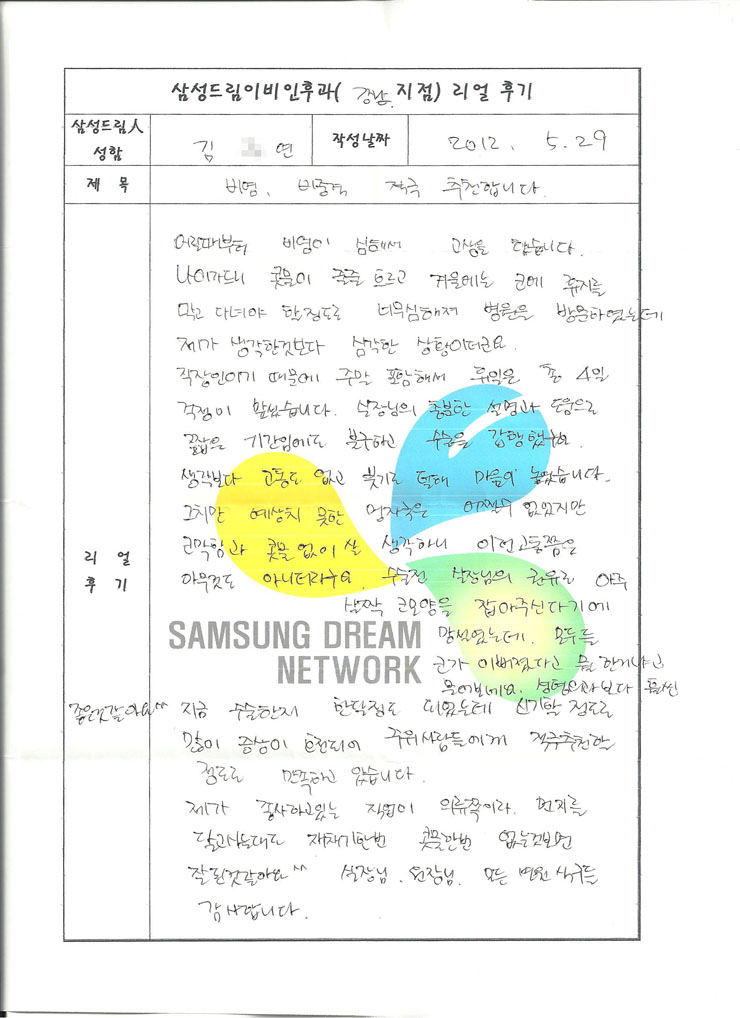 삼성드림이비인후과( 강남 지점) 리얼 후기
삼성드림人 성함
김 연
작성날짜
2012. 5. 29
제 목
비염, 비중격 적극 추천합니다.
어릴때부터 비염이 심해서 고생을 했습니다.
나이가드니 콧물이 줄줄 흐르고 겨울에는 코에 휴지를
막고 다녀야 할정도로 너무심해져 병원을 방문하였는데
제가 생각한것보다 심각한 상황이더군요.
직장인이기 때문에 주말 포함해서 휴일은 총 4일
걱정이 앞섰습니다. 실장님의 충분한 설명과 도움으로
짧은 기간임에도 불구하고 수술을 감행했구요.
생각보다 고통도 없고 붓기도 덜해 마음이 놓였습니다.
그치만 예상치 못한 멍자국은 어쩔수 없었지만
코막힘과 콧물 없이 살 생각하니 이런고통쯤은
아무것도 아니더라구요. 수술전 실장님의 권유로 아주
살짝 코모양을 잡아주신다기에
망설였는데. 모두들
코가 이뻐졌다고 뭘 한거냐고
물어보네요. 성형외과보다 훨씬
좋은것같아요^^ 지금 수술한지 한달정도 되었는데 신기할 정도로
많이 증상이 호전되어 주위사람들에게 적극추천할
정도로 만족하고 있습니다.
제가 종사하고있는 직업이 의류쪽이라. 먼지를
달고사는데도 재채기한번 콧물한번 없는것보면
잘된것같아요^^ 실장님. 원장님. 모든 병원 식구들
감사합니다.
리 얼
후 기
SAMSUNG DREAM
NETWORK